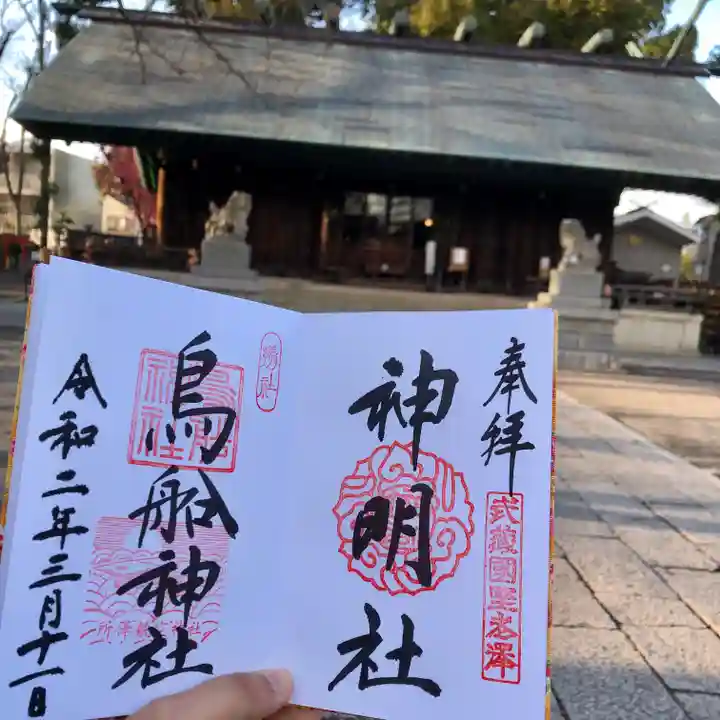 奉拝
武蔵國野老澤
神明社
摂社
鳥船神社
鳥船神社
令和二年三月十一日